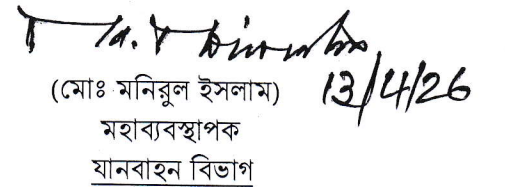 (মোঃ মনিরুল ইসলাম) 13/4/26
মহাব্যবস্থাপক
যানবাহন বিভাগ